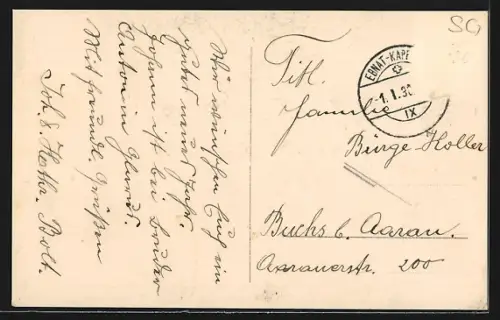 Wir wünschen Euch ein
gutes neues Jahr.
Johann ist bei Bruder
Anton in Glarus.
Mit freundl. Grüßen
Joh. & Kathr. Bolt.
SG
EBNAT-KAPP
-1.I.3
IX
Titl.
Familie
Bürge-Holler
Buchs b. Aarau.
Aarauerstr. 200